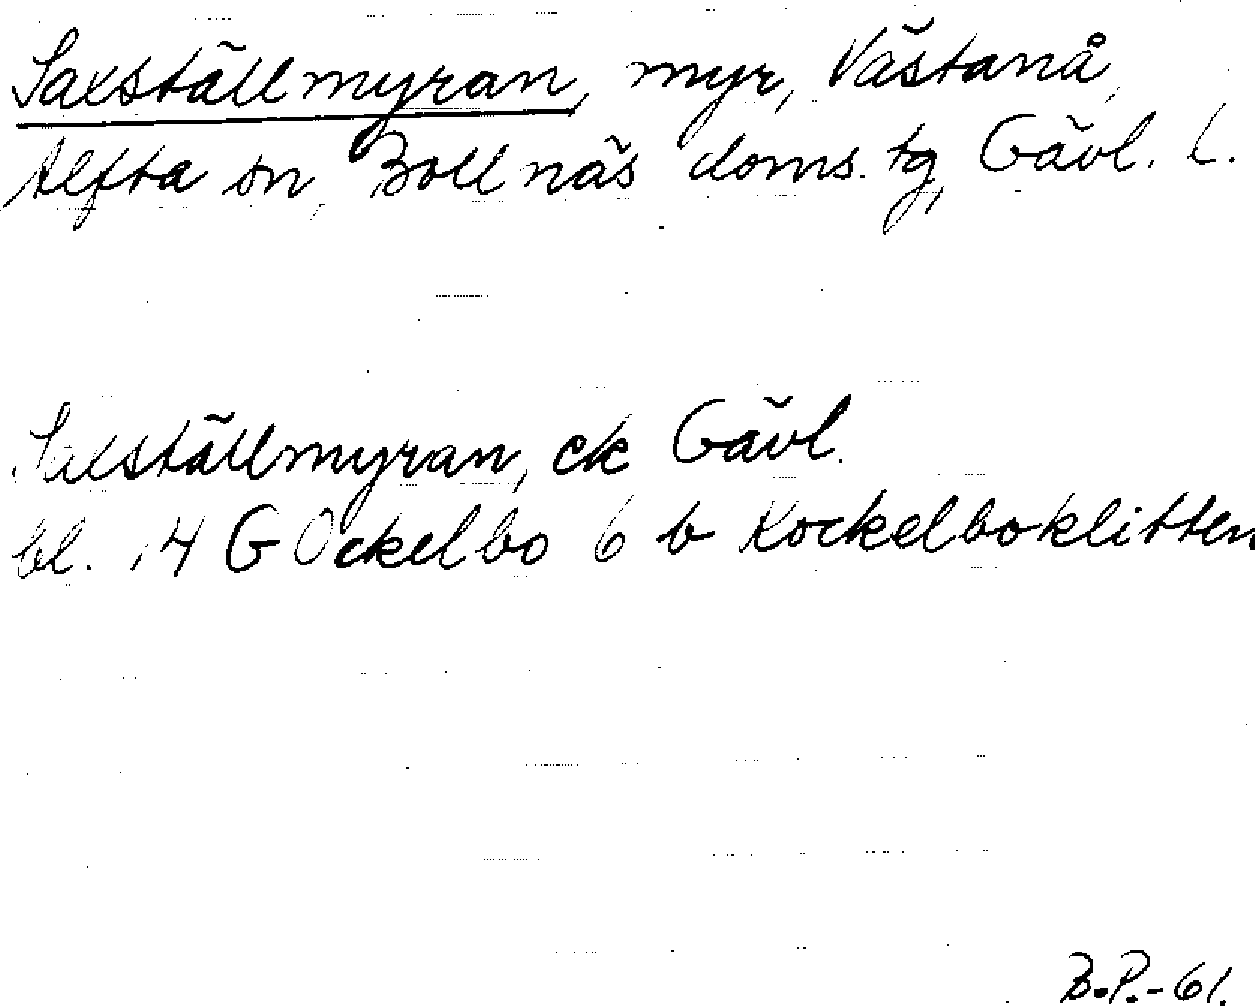 Saxställmyran, myr, Västanå,
Alfta sn, Bollnäs doms. tg, Gävl. l.
Saxställmyran, ek Gävl.
bl. 14 G Ockelbo 6 b Kockelboklitten
B.P.-61.